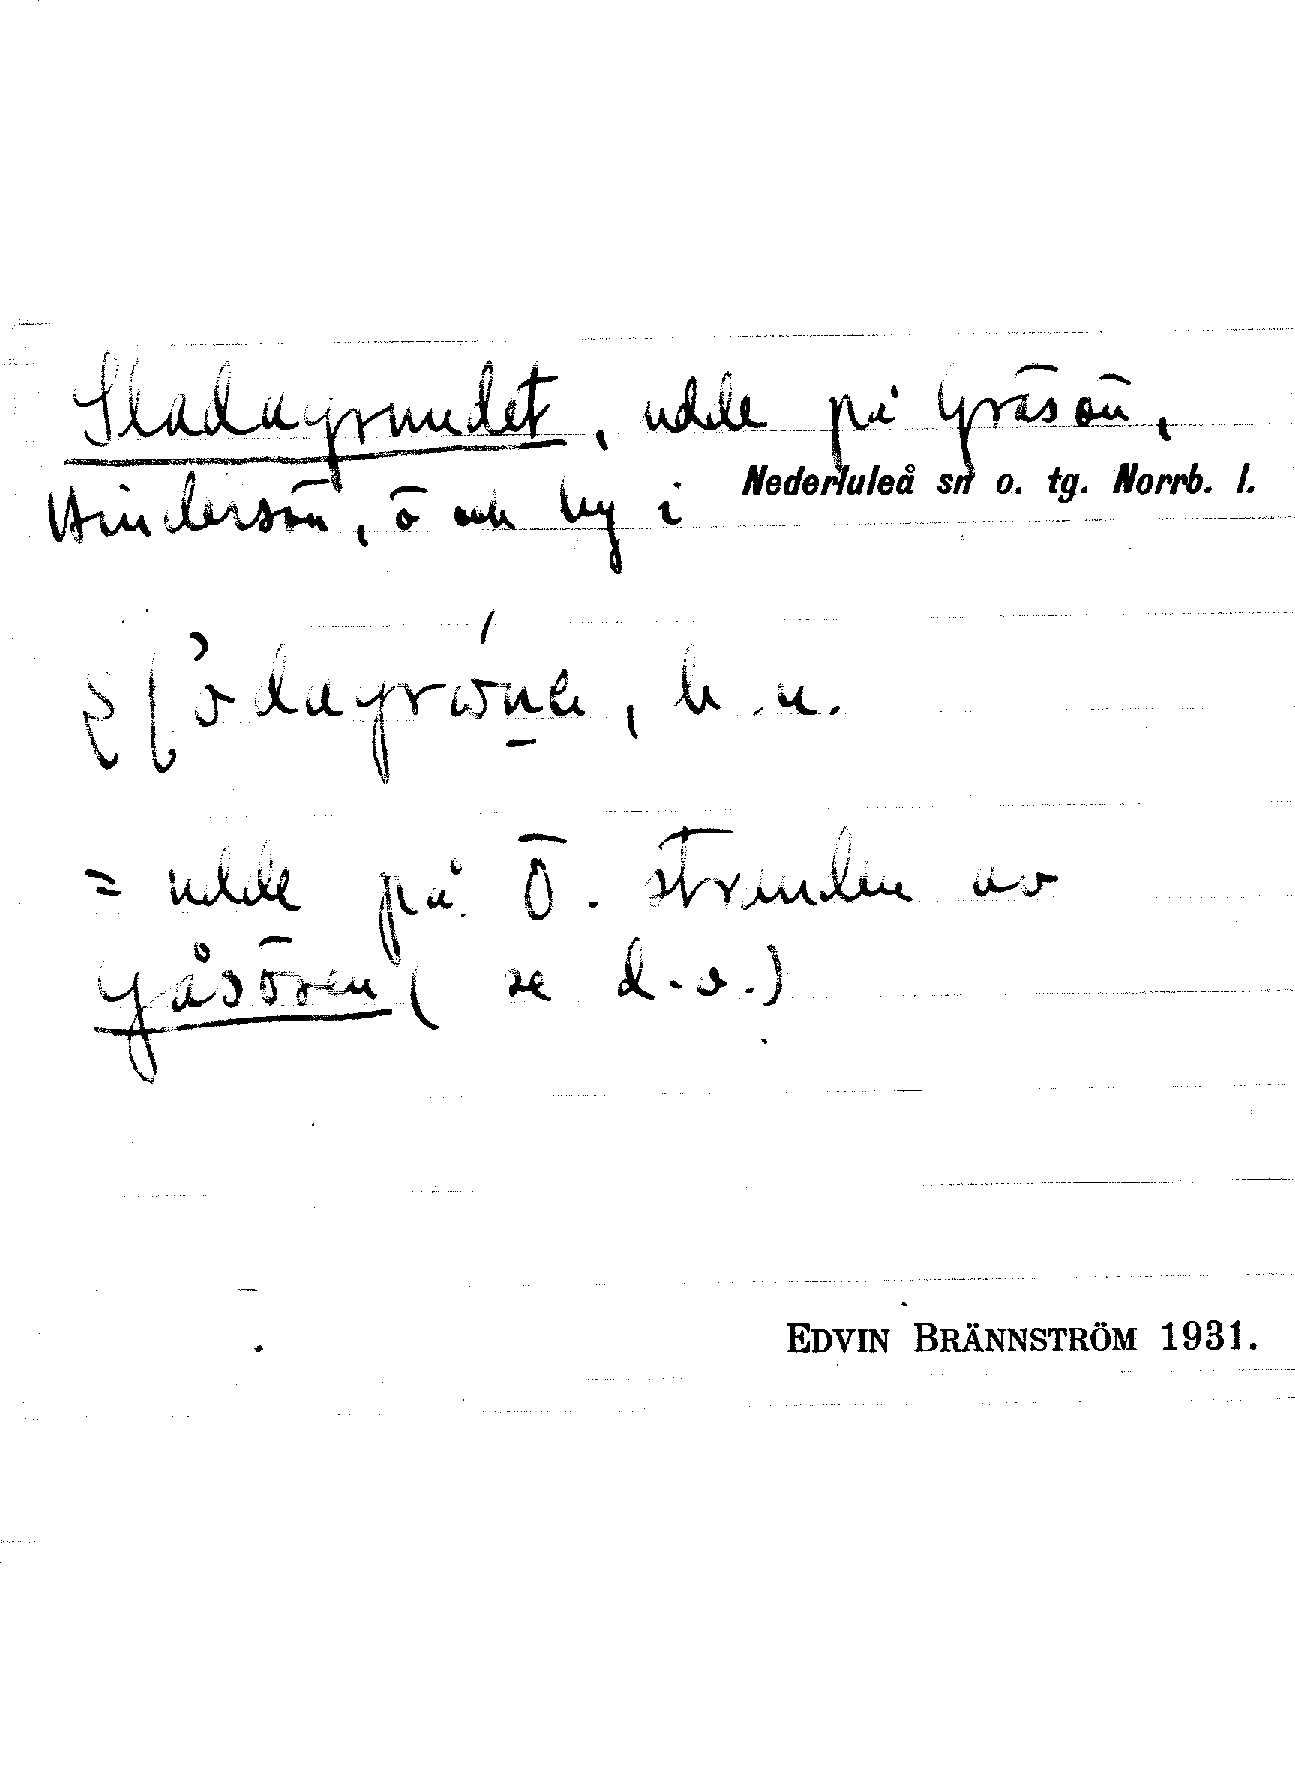 Sladagrundet, udde på Gräsön,
Hindersön, ö och by i Nederluleå sn o. tg. Norrb. l.
b. n.
= udde på Ö. stranden av
Gåsören (se d.o.)
EDVIN BRÄNNSTRÖM 1931.